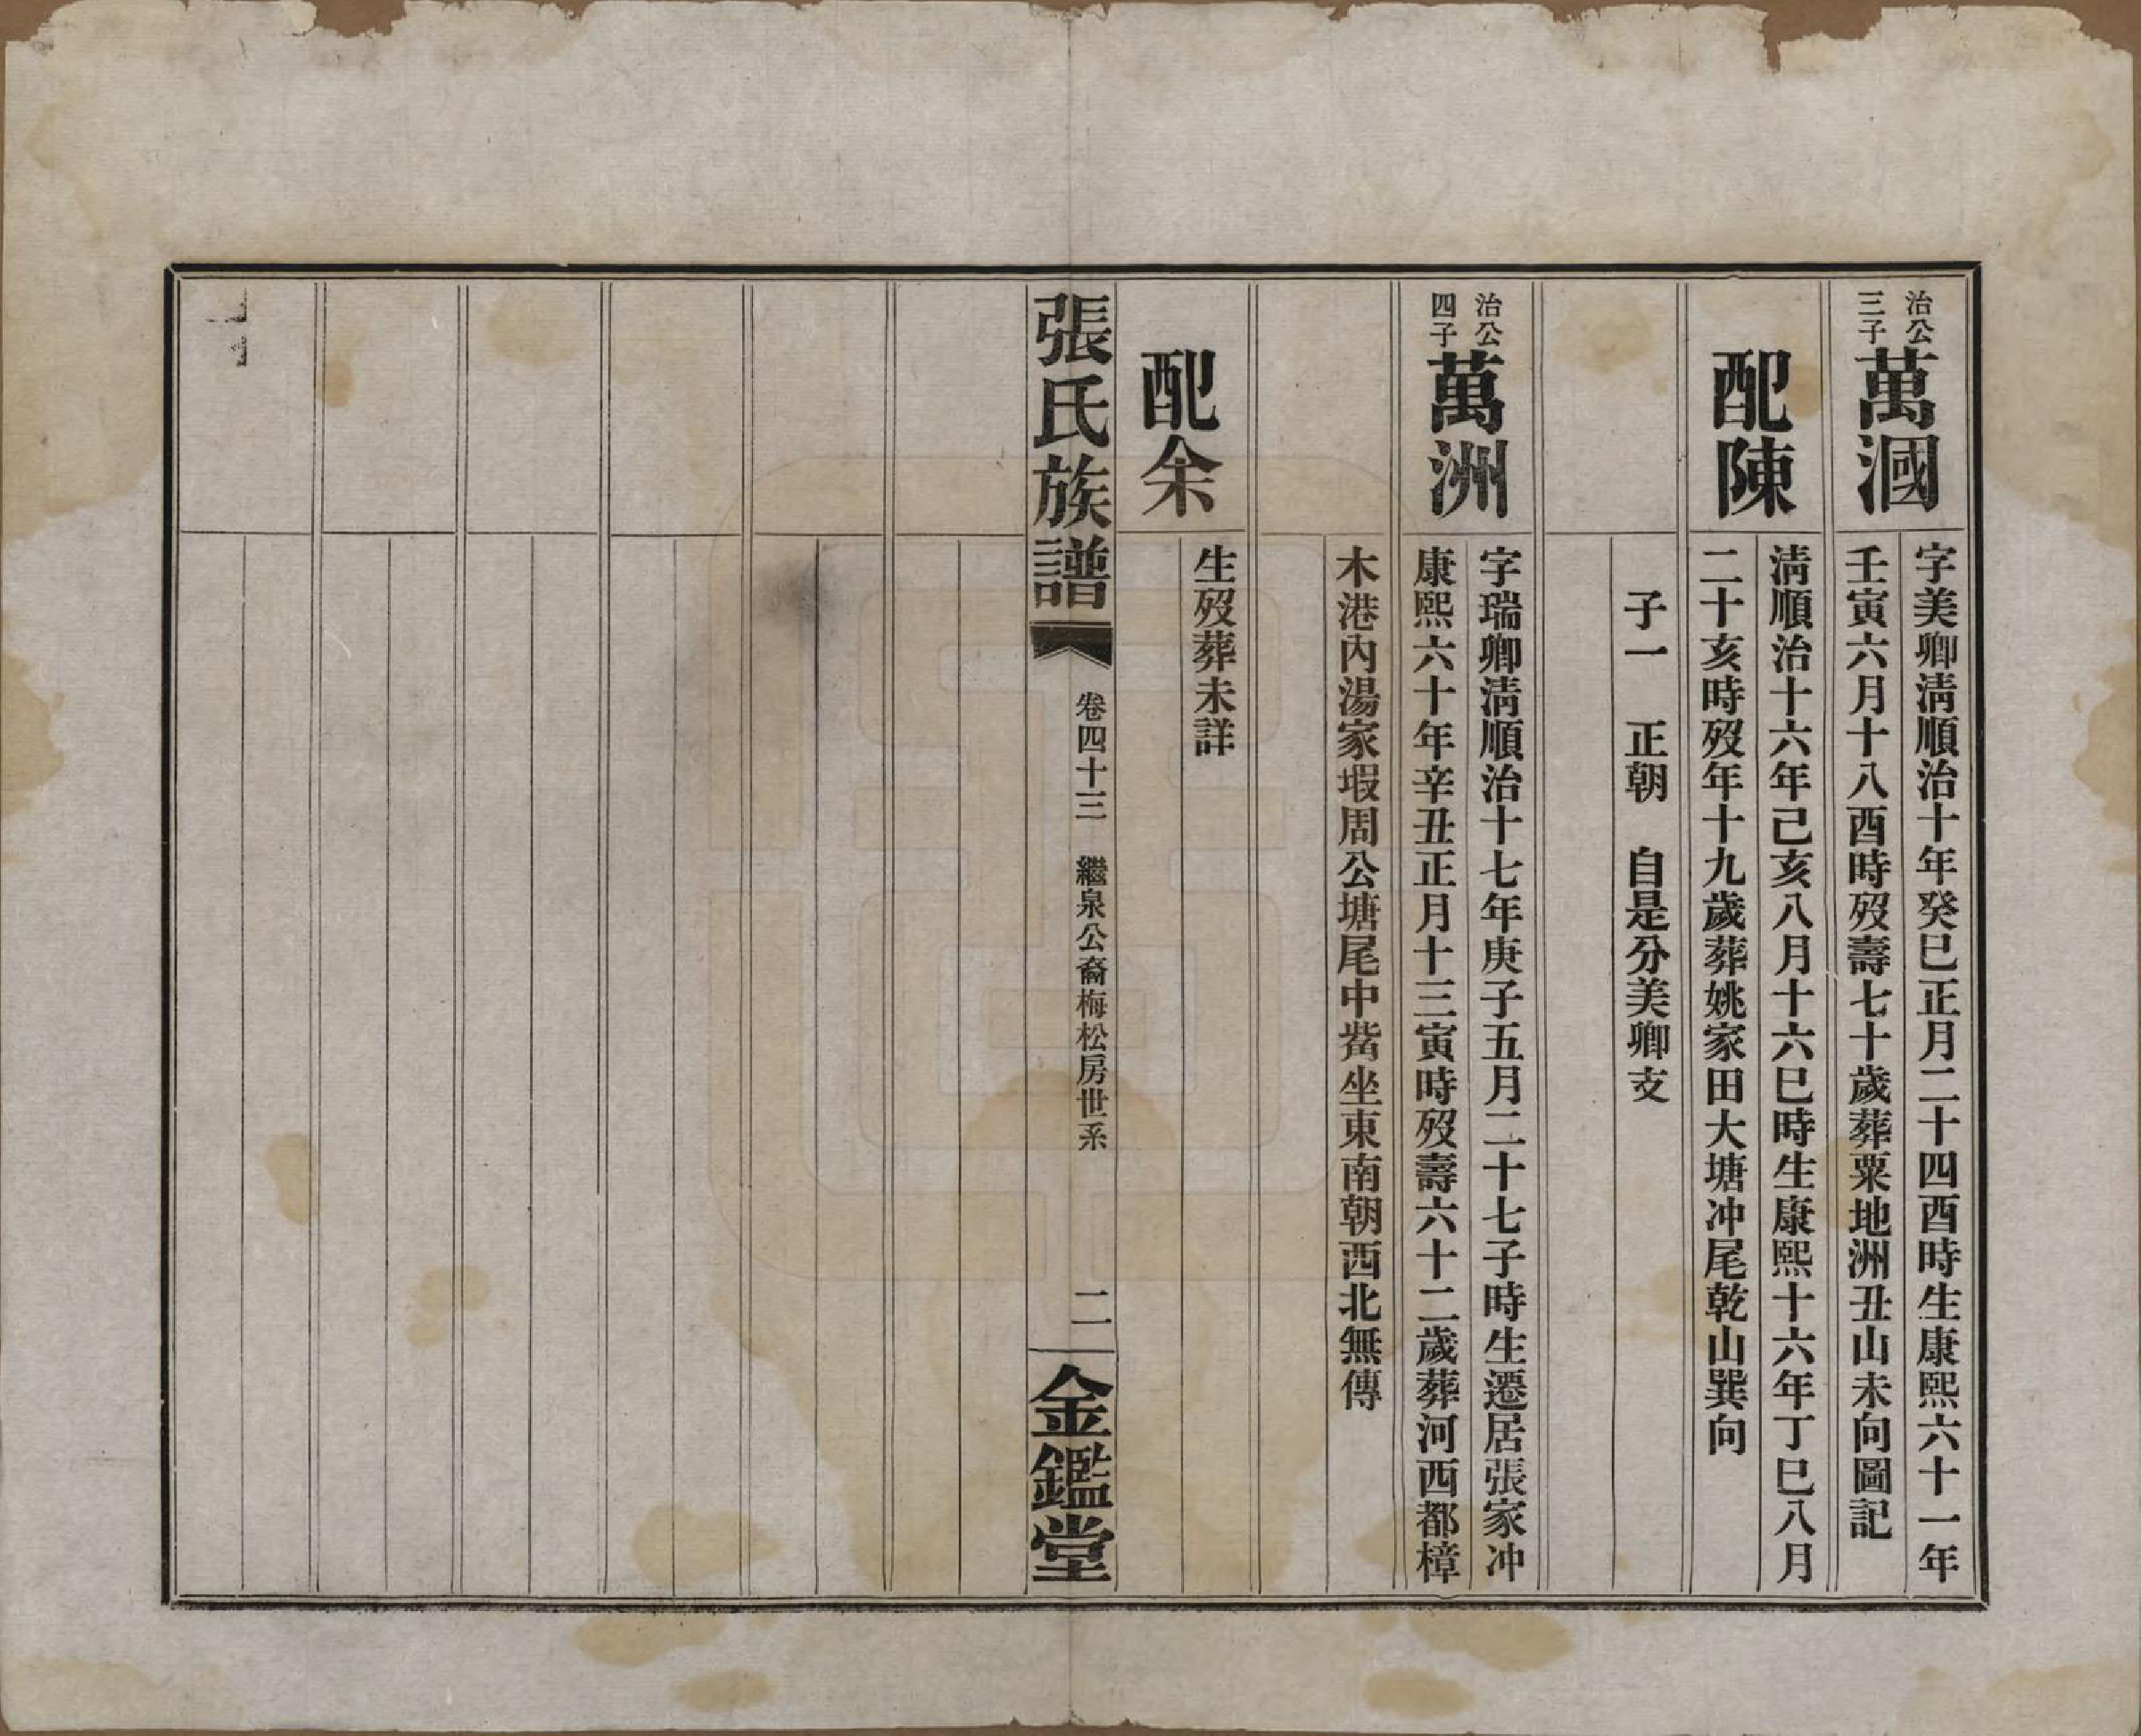 治公
三子
萬漍
字美卿淸順治十年癸巳正月二十四酉時生康熙六十一年
壬寅六月十八酉時歿壽七十歲葬粟地洲丑山未向圖記
配陳
淸順治十六年己亥八月十六巳時生康熙十六年丁巳八月
二十亥時歿年十九歲葬姚家田大塘冲尾乾山巽向
子一　正朝　自是分美卿支
治公
四子
萬洲
字瑞卿淸順治十七年庚子五月二十七子時生遷居張家冲
康熙六十年辛丑正月十三寅時歿壽六十二歲葬河西都樟
木港內湯家塅周公塘尾中嵴坐東南朝西北無傳
配余
生歿葬未詳
張氏族譜
卷四十三　繼泉公裔梅松房世系
二
金鑑堂